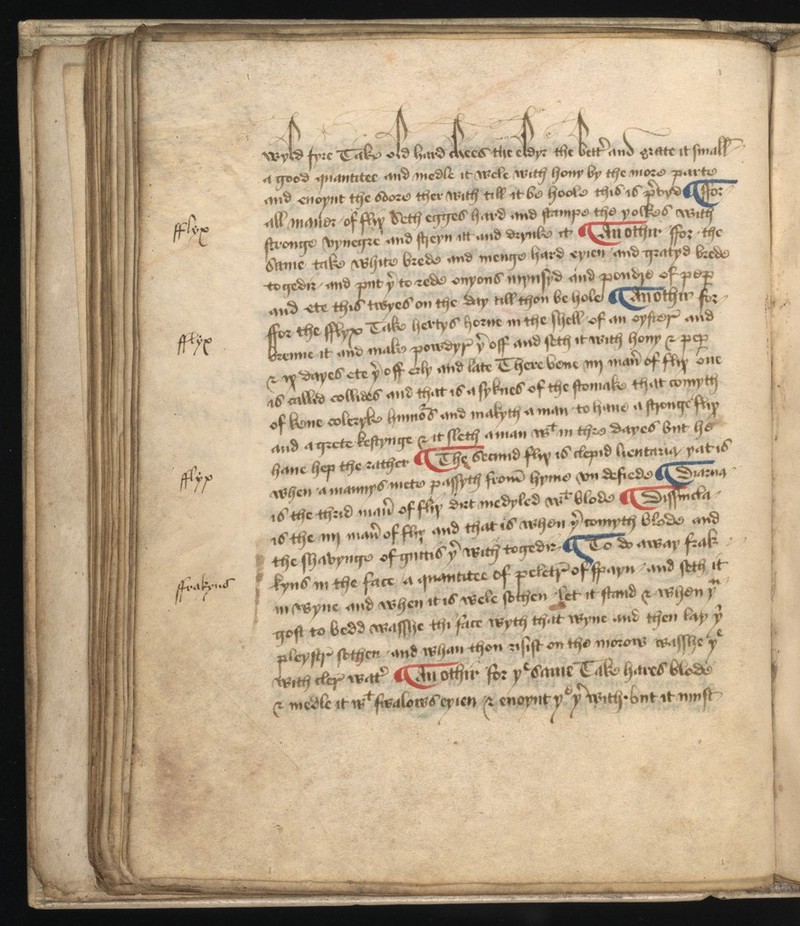 wyld fyre Take old hard chees the eldyr the bettr and grate it small
a good quantitee and medle it wele with hony by the more parte
and enoynt the soore ther with till it be hoole this is pvyd ¶ ffor
all maner of flyx Seth egges hard and stampe the yolkes with
fflyx
stronge vynegre and streyn itt and drynke it ¶ An othir ffor the
same take white brede and menge hard eyien and gratyd brede
togedir and put yr to rede onyons mynsyd and poudre of pepr
and ete this twyes on the day till thou be hole ¶ An othir for
ffor the fflyx Take hertys horne in the shell of an oyster and
fflyx
brenne it and make powdyr yr off and seth it with hony & pepr
& ix dayes ete yr off erly and late There bene iiij maner of flix one
is called collides and that is a syknes of the stomake that comyth
of kene coleryke humors and makyth a man to haue a stronge flix
and a grete kestynge & it sleth a man wt in thre dayes but he
haue hep the rather ¶ The secund flix is clepid lientaria yat is
fflyx
when a mannys mete passyth from hyme vn defiede ¶ Diarria
is the thrid maner of flix dirt medyled wt blode ¶ Dissincla
is the iiij maner of flix and that is when yr comyth blode and
the shavynge of guttis yr with togedir ¶ To do away frak
ffrakyns
kyns in the face a quantitee of peletr of spayn and seth it
in wyne and when it is wele sothen let it stand & when yu
gost to bedd wasshe thi face wyth that wyne and then lay yr
pleystr sothen and whan thou risist on the morow wasshe ye
with cler watr ¶ An othir for ye same Take hares blode
& medle it wt swalows eyien & enoynt ye yr with but it must